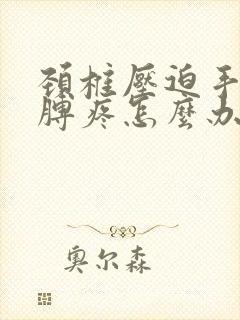 頚柱壓迫手
臂疼怎麼办
奥尔森